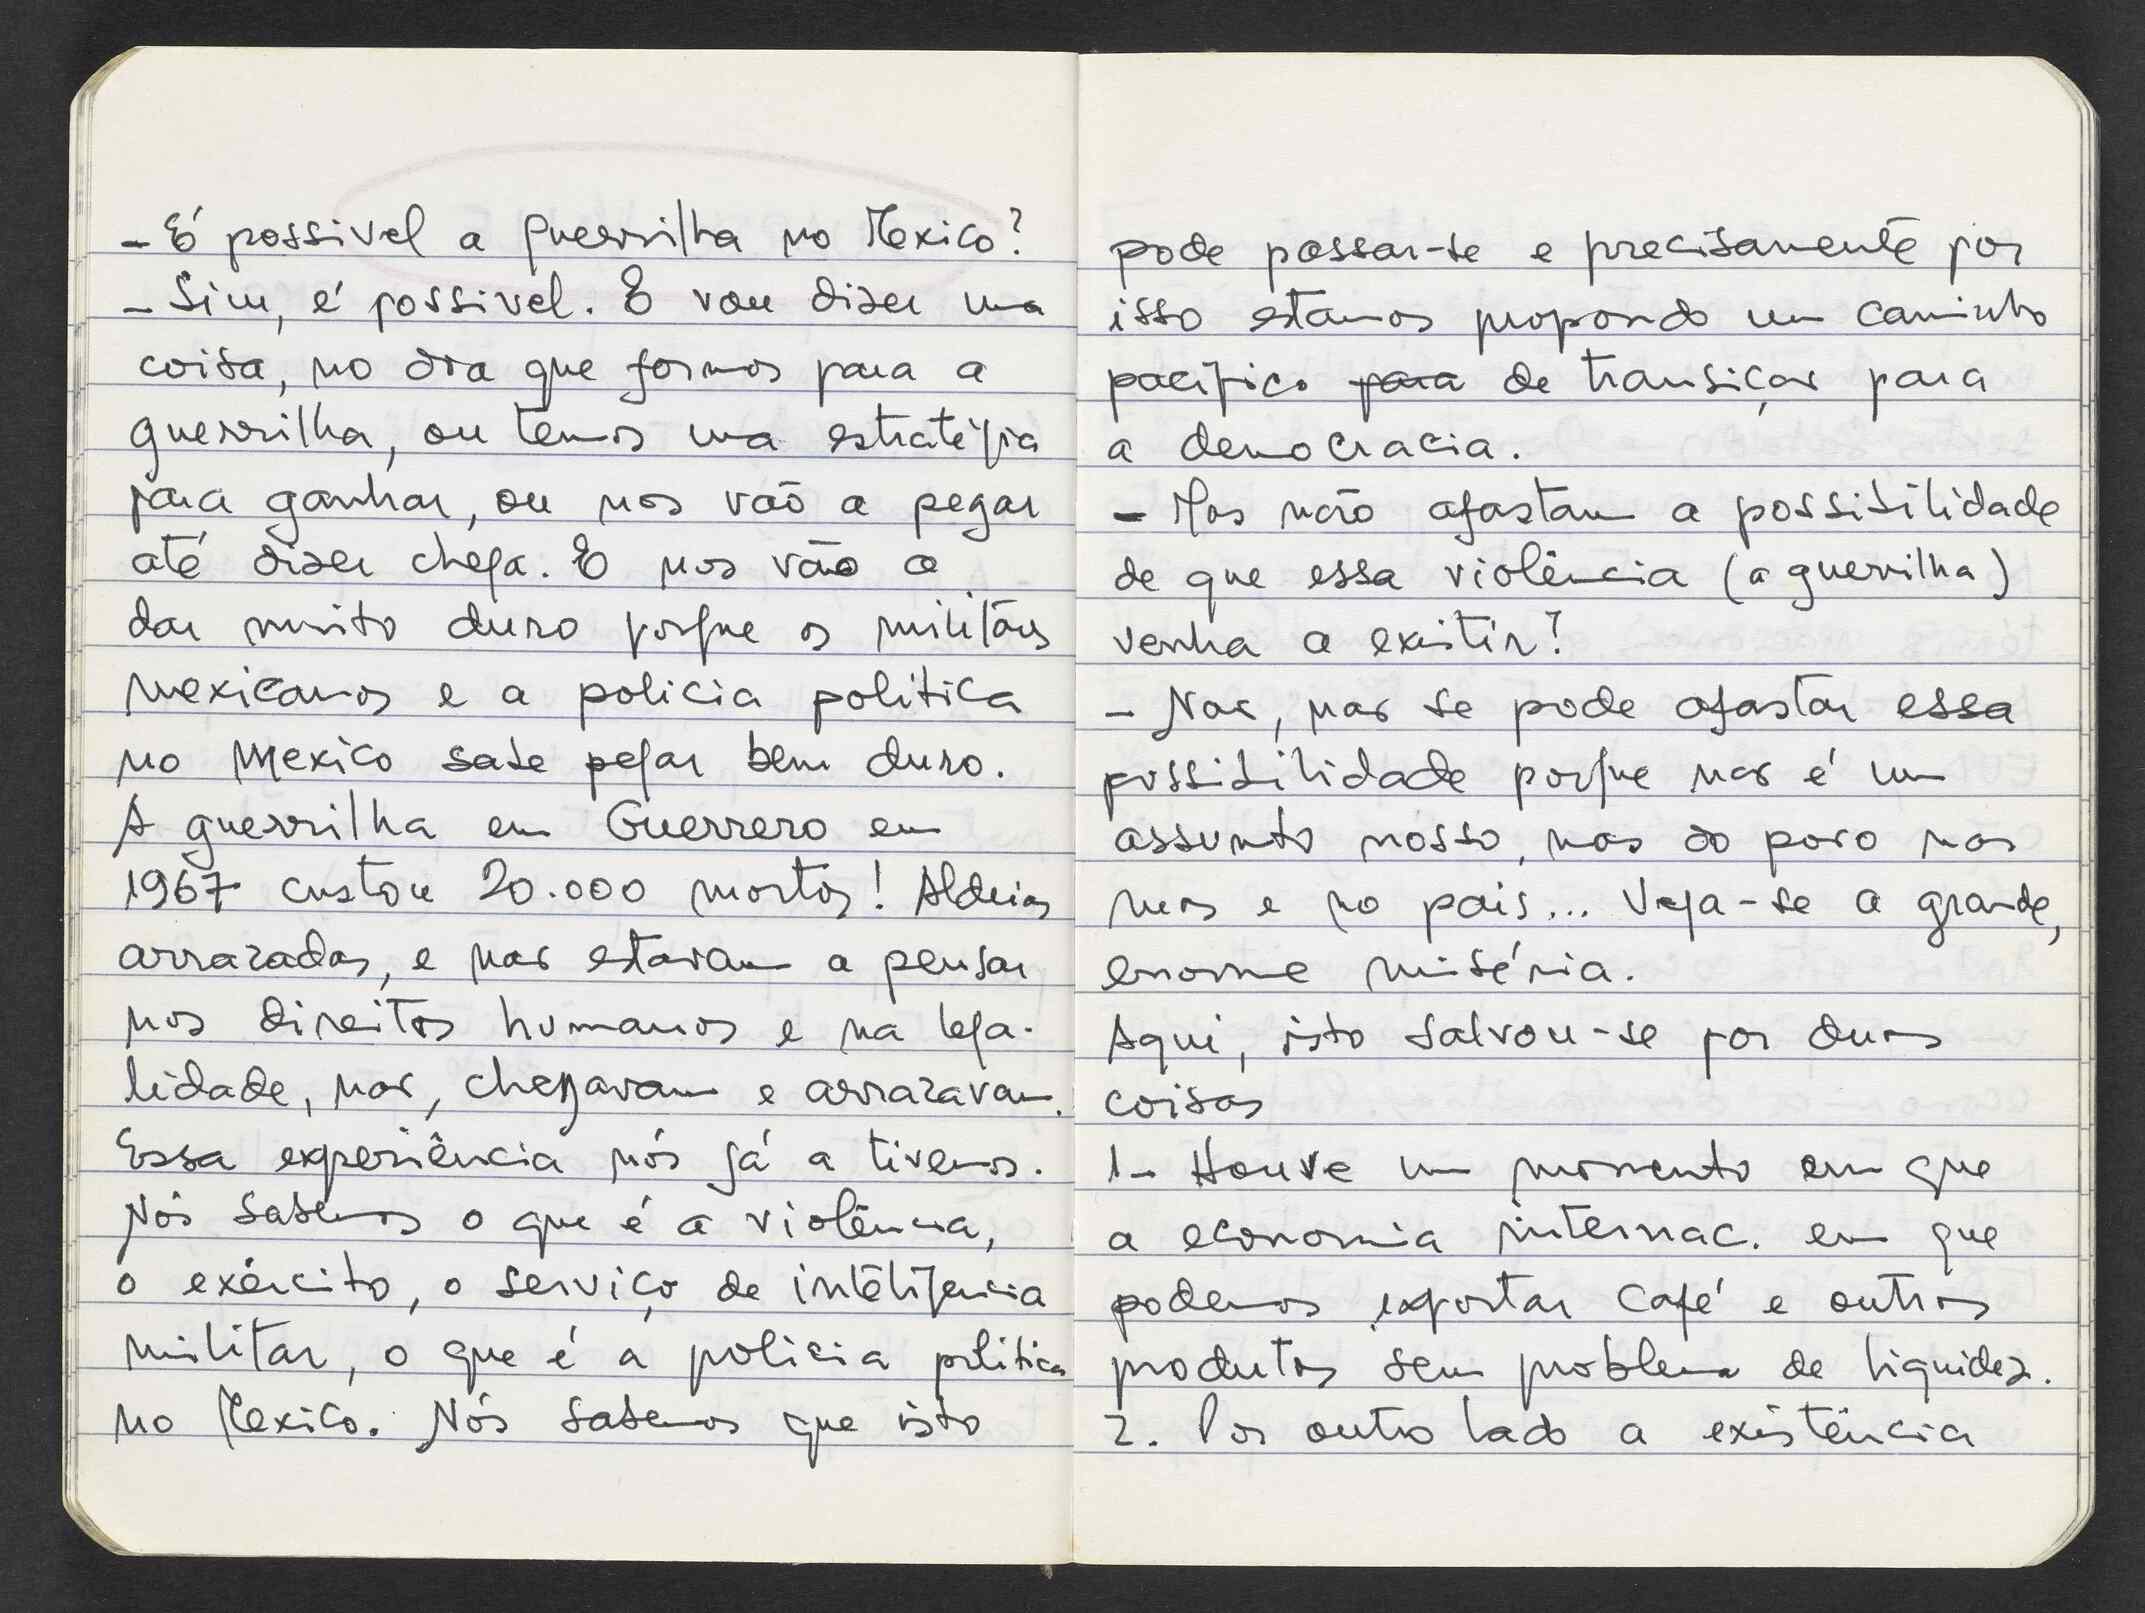 - É possivel a guerrilha no Mexico?
- Sim, é possivel. E vou dizer uma
coisa, no dia que formos para a
guerrilha, ou temos uma estratégia
para ganhar, ou nos vão a pegar
até dizer chega. E nos vão a
dar muito duro porque os militares
mexicanos e a policia politica
no Mexico sabe pegar bem duro.
A guerrilha em Guerrero em
1967 custou 20.000 mortos! Aldeias
arrazadas, e não estavam a pensar
nos direitos humanos e na lega-
lidade, não, chegavam e arrazavam.
Essa experiência nós já a tivemos.
Nós sabemos o que é a violência,
o exército, o serviço de inteligencia
militar, o que é a policia politica
no Mexico. Nós sabemos que isto
pode passar-se e precisamente por
isso estamos propondo um caminho
pacifico para de transição para
a democracia.
- Mas não afastam a possibilidade
de que essa violência (a guerrilha)
venha a existir?
- Não, não se pode afastar essa
possibilidade porque não é um
assunto nosso, mas do povo nas
ruas e no pais... Veja-se a grande,
enorme miséria.
Aqui, isto salvou-se por duas
coisas
1- Houve um momento em que
a economia internac. em que
podemos exportar café e outros
produtos sem problema de liquidez.
2. Por outro lado a existência